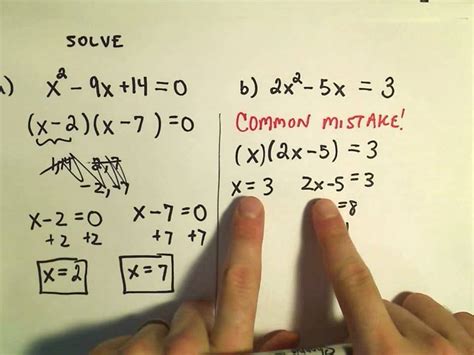 SOLVE
a) x² - 9x + 14 = 0
(x - 2)(x - 7) = 0
-2, -7
x - 2 = 0 x - 7 = 0
+2 +2 +7 +7
x = 2 x = 7
b) 2x² - 5x = 3
COMMON MISTAKE!
(x)(2x - 5) = 3
x = 3 2x - 5 = 3
= 8